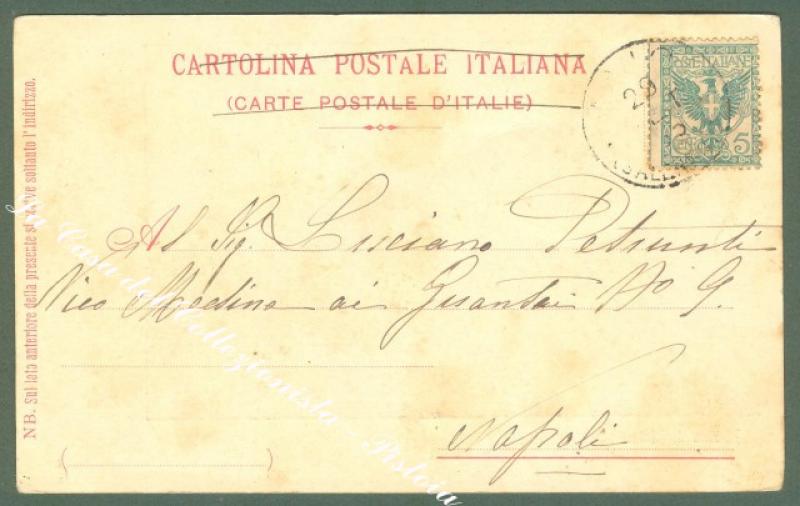 CARTOLINA POSTALE ITALIANA
(CARTE POSTALE D'ITALIE)
POSTE ITALIANE
CENT. 5
29
Al Sig. Luciano Petrunti
Vico Medina ai Guantai No 9.
Napoli
NB. Sul lato anteriore della presente si scrive soltanto l'indirizzo.
La Casa del Collezionista - Pistoia